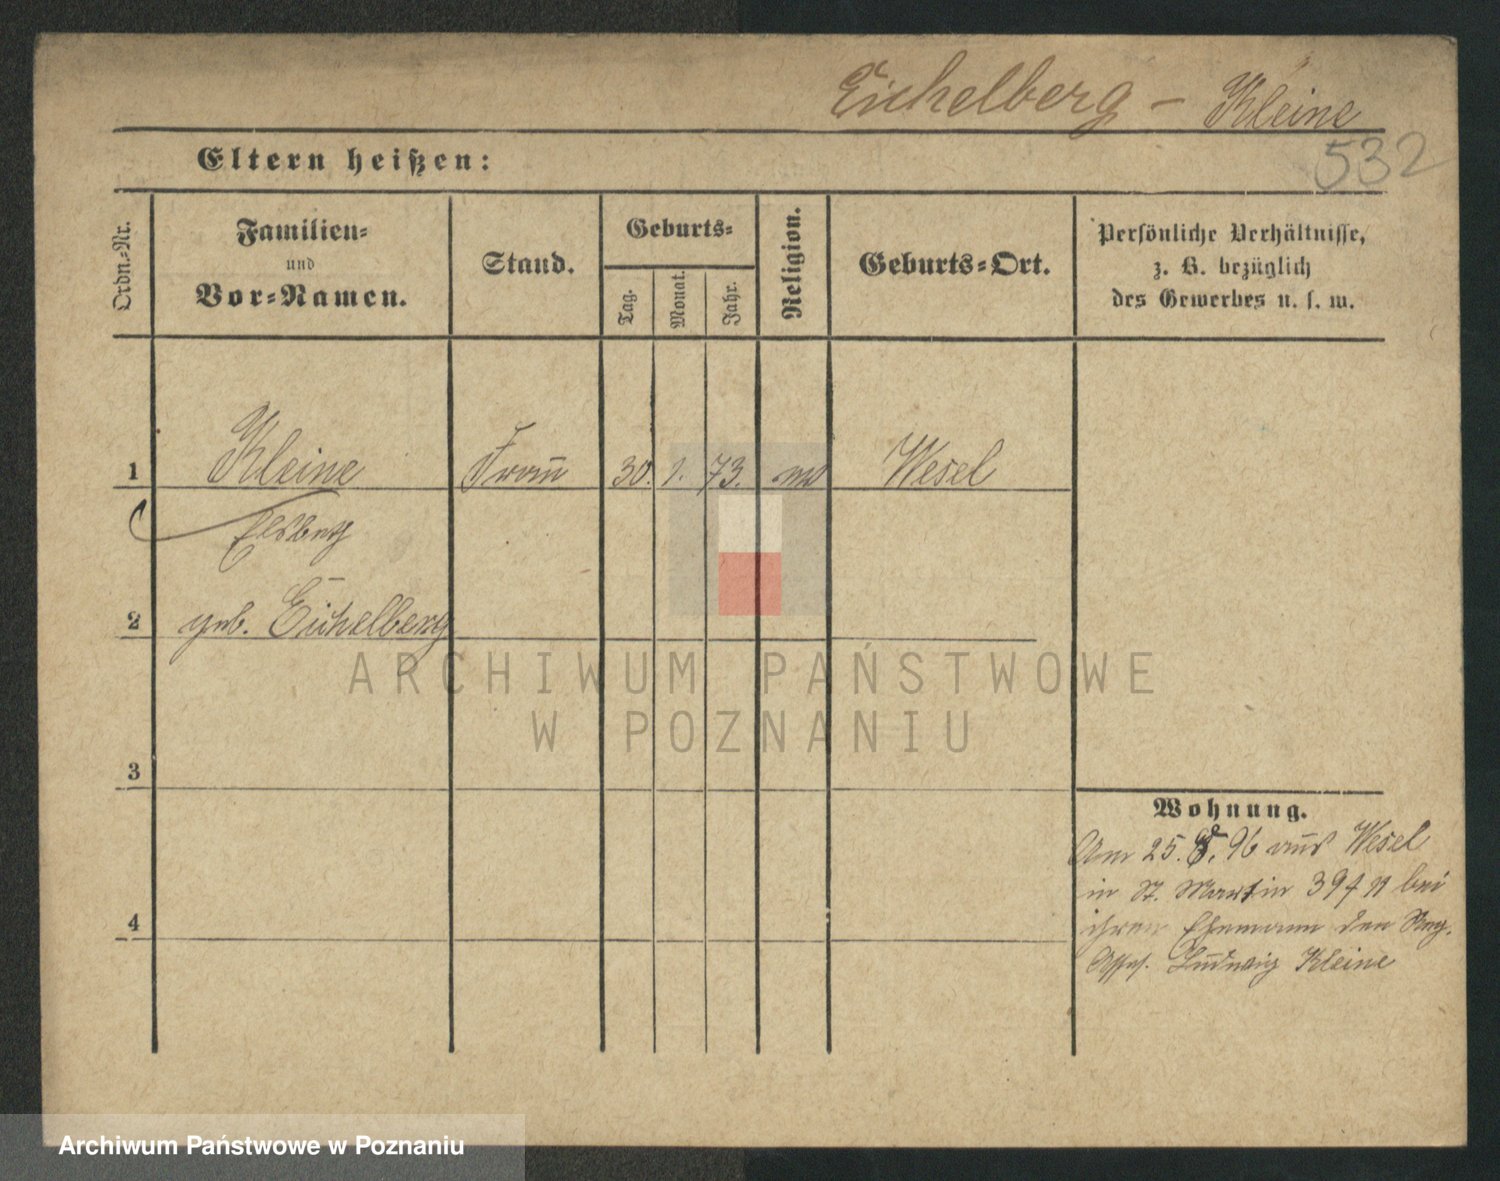 Eichelberg - Kleine
532
Eltern heißen:
Ordn.-Nr.
Familien-
und
Vor-Namen.
Stand.
Geburts-
Tag.
Monat.
Jahr.
Religion.
Geburts-Ort.
Persönliche Verhältnisse,
z. B. bezüglich
des Gewerbes u. s. w.
1 Kleine Frau 30. 1. 73. ev Wesel
Elsbeth
2 geb. Eichelberg
3
4
Wohnung.
Am 25. 8. 96 aus Wesel
in St. Martin 39 bei
ihrem Ehemann den Reg.
Assess. Ludwig Kleine
ARCHIWUM PAŃSTWOWE
W POZNANIU
Archiwum Państwowe w Poznaniu